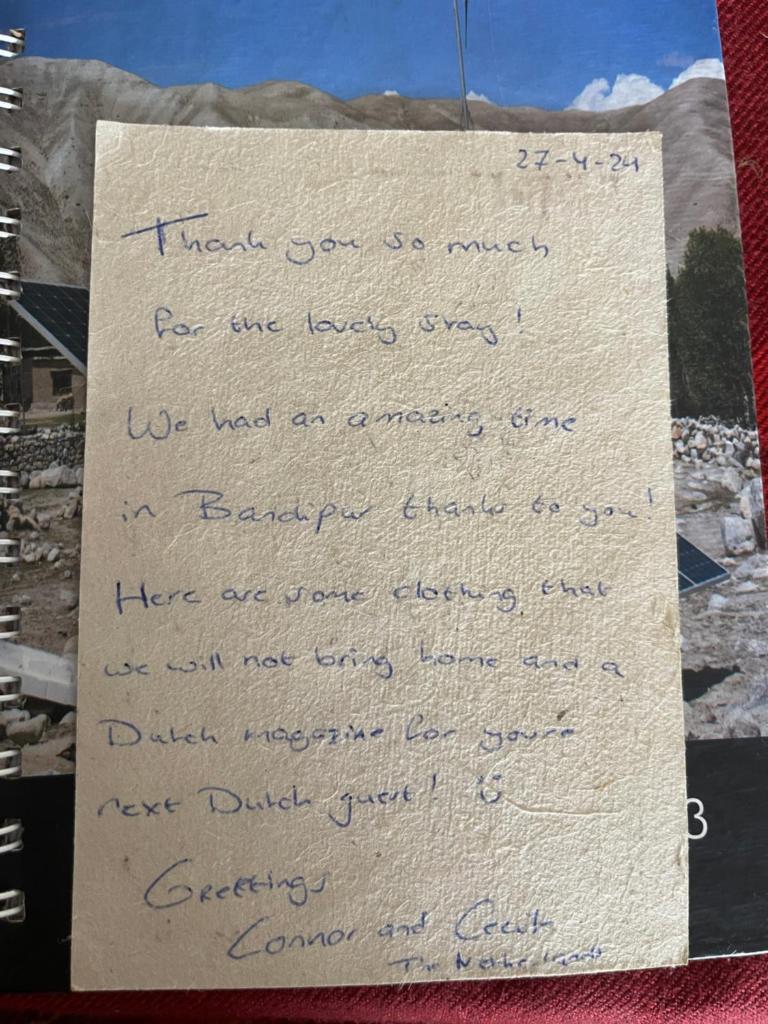 27-4-24
Thank you so much
for the lovely stay!
We had an amazing time
in Bandipur thanks to you!
Here are some clothing that
we will not bring home and a
Dutch magazine for youre
next Dutch guest!
Greetings
Connor and
The Netherlands
3